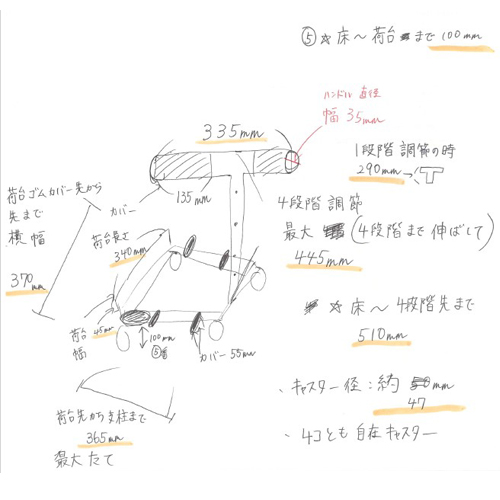 ⑤ ☆床〜荷台まで 100mm
ハンドル 直径
幅 35mm
335mm
1段階 調節の時
290mm→
荷台ゴムカバー先から
先まで
横幅
370mm
カバー
135mm
荷台長さ
340mm
4段階調節
最大 (4段階まで伸ばして)
445mm
☆床〜4段階先まで
510mm
荷台
幅
45mm
100mm
⑤
カバー 55mm
・キャスター径：約 mm
47
・4コとも 自在キャスター
荷台先から支柱まで
365mm
最大 たて